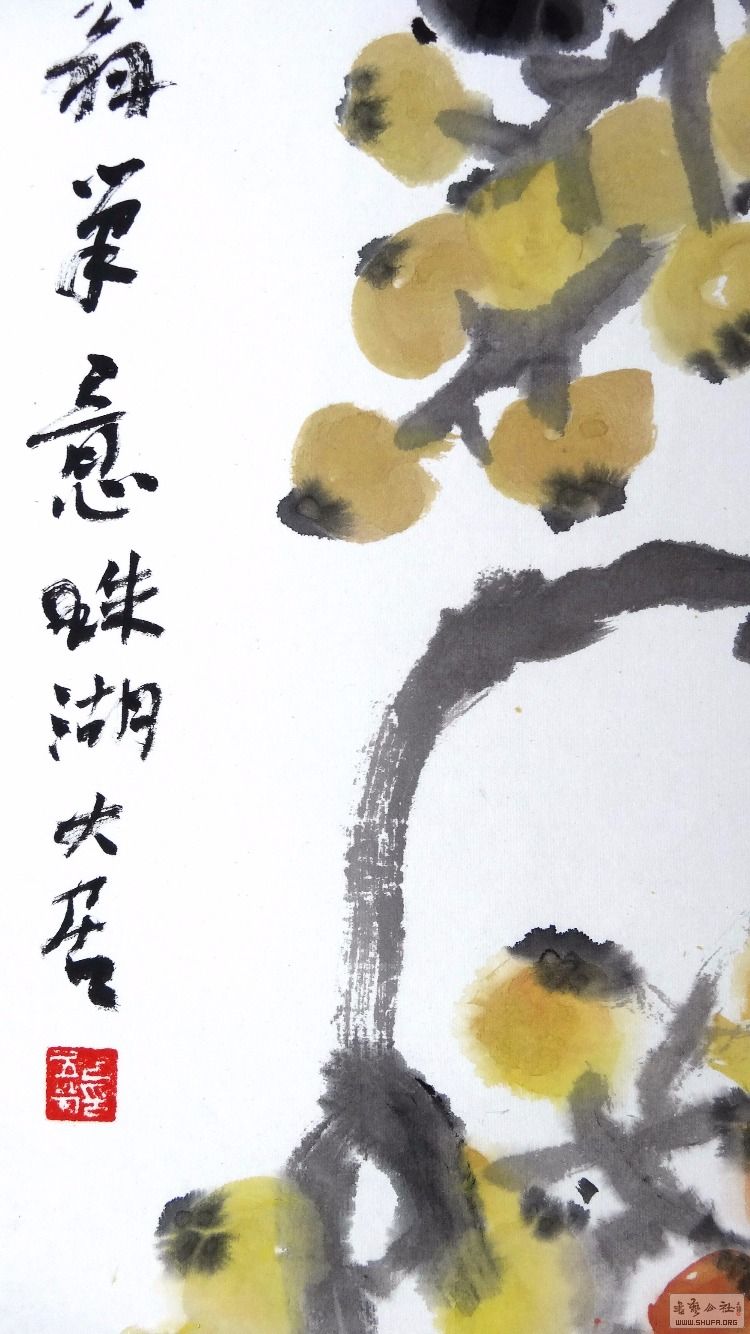 翁筆意珠湖大居
书艺公社
WWW.SHUFA.ORG